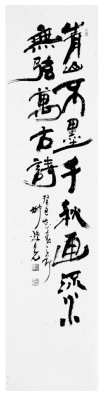 青山不墨千秋画流水
無弦萬古詩